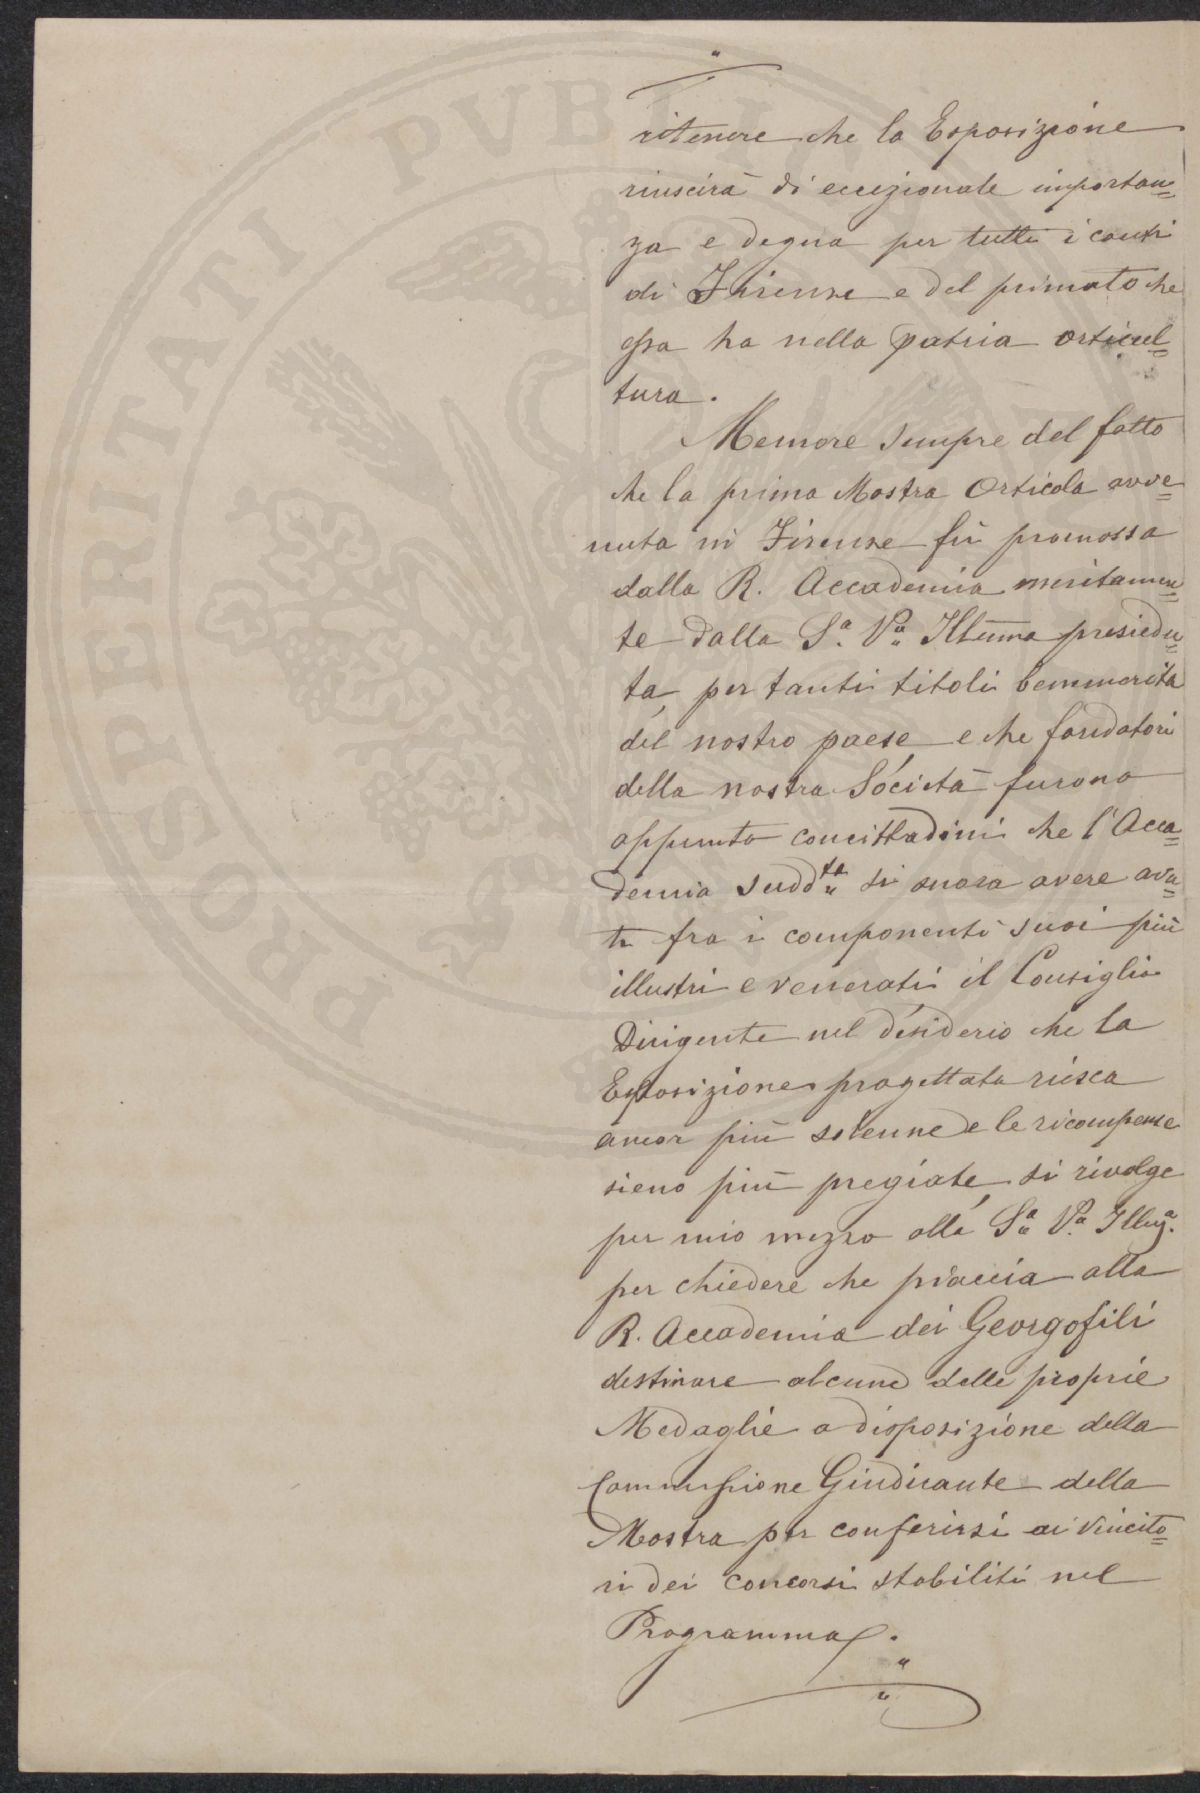 ritenere che la Esposizione
riuscirà di eccezionale importan=
za e degna per tutti i conti
di Firenze e del primato che
essa ha nella patria orticul=
tura.
Memore sempre del fatto
che la prima Mostra Orticola avve=
nuta in Firenze fù promossa
dalla R. Accademia meritamen=
te dalla S.a V.a Illumma presiedu=
ta, per tanti titoli bemmerita
del nostro paese e che fondatori
della nostra Società furono
appunto concittadini che l'Acca=
demia sudd.ta si onora avere avu=
ti fra i componenti suoi più
illustri e venerati il Consiglio
Dirigente nel desiderio che la
Esposizione progettata riesca
ancor più solenne e le ricompense
sieno più pregiate, si rivolge
per mio mezzo alla S.a V.a Illma.
per chiedere che piaccia alla
R. Accademia dei Georgofili
destinare alcune delle proprie
Medaglie a disposizione della
Commissione Giudicante della
Mostra per conferirsi ai vincito=
ri dei concorsi stabiliti nel
Programma.
PROSPERITATI PVBLICA